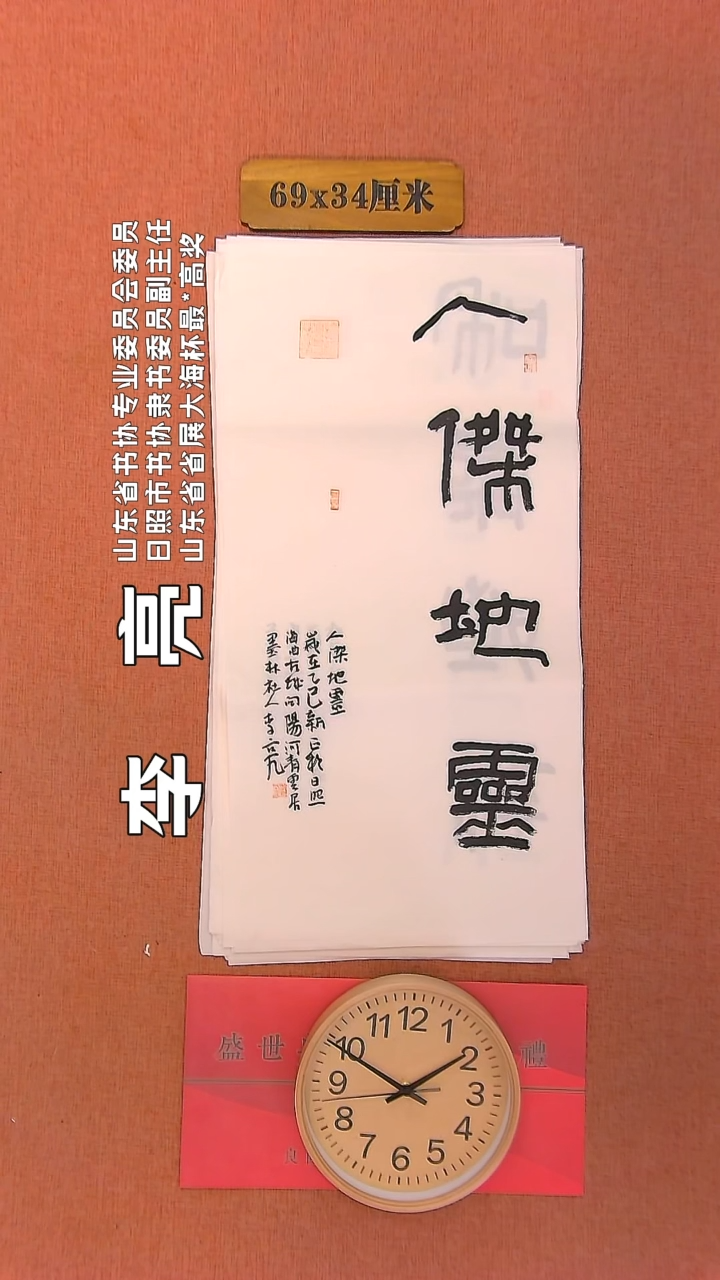 69x34厘米
山东省书协专业委员会委员
日照市书协隶书委员副主任
山东省省展大海杯最*高奖
李亮
人傑地靈
人傑地靈
歲在乙巳新正於日照
海曲古城向陽河青雲居
墨林社人李亮
盛世
禮
11 12 1
10 2
9 3
8 4
7 6 5